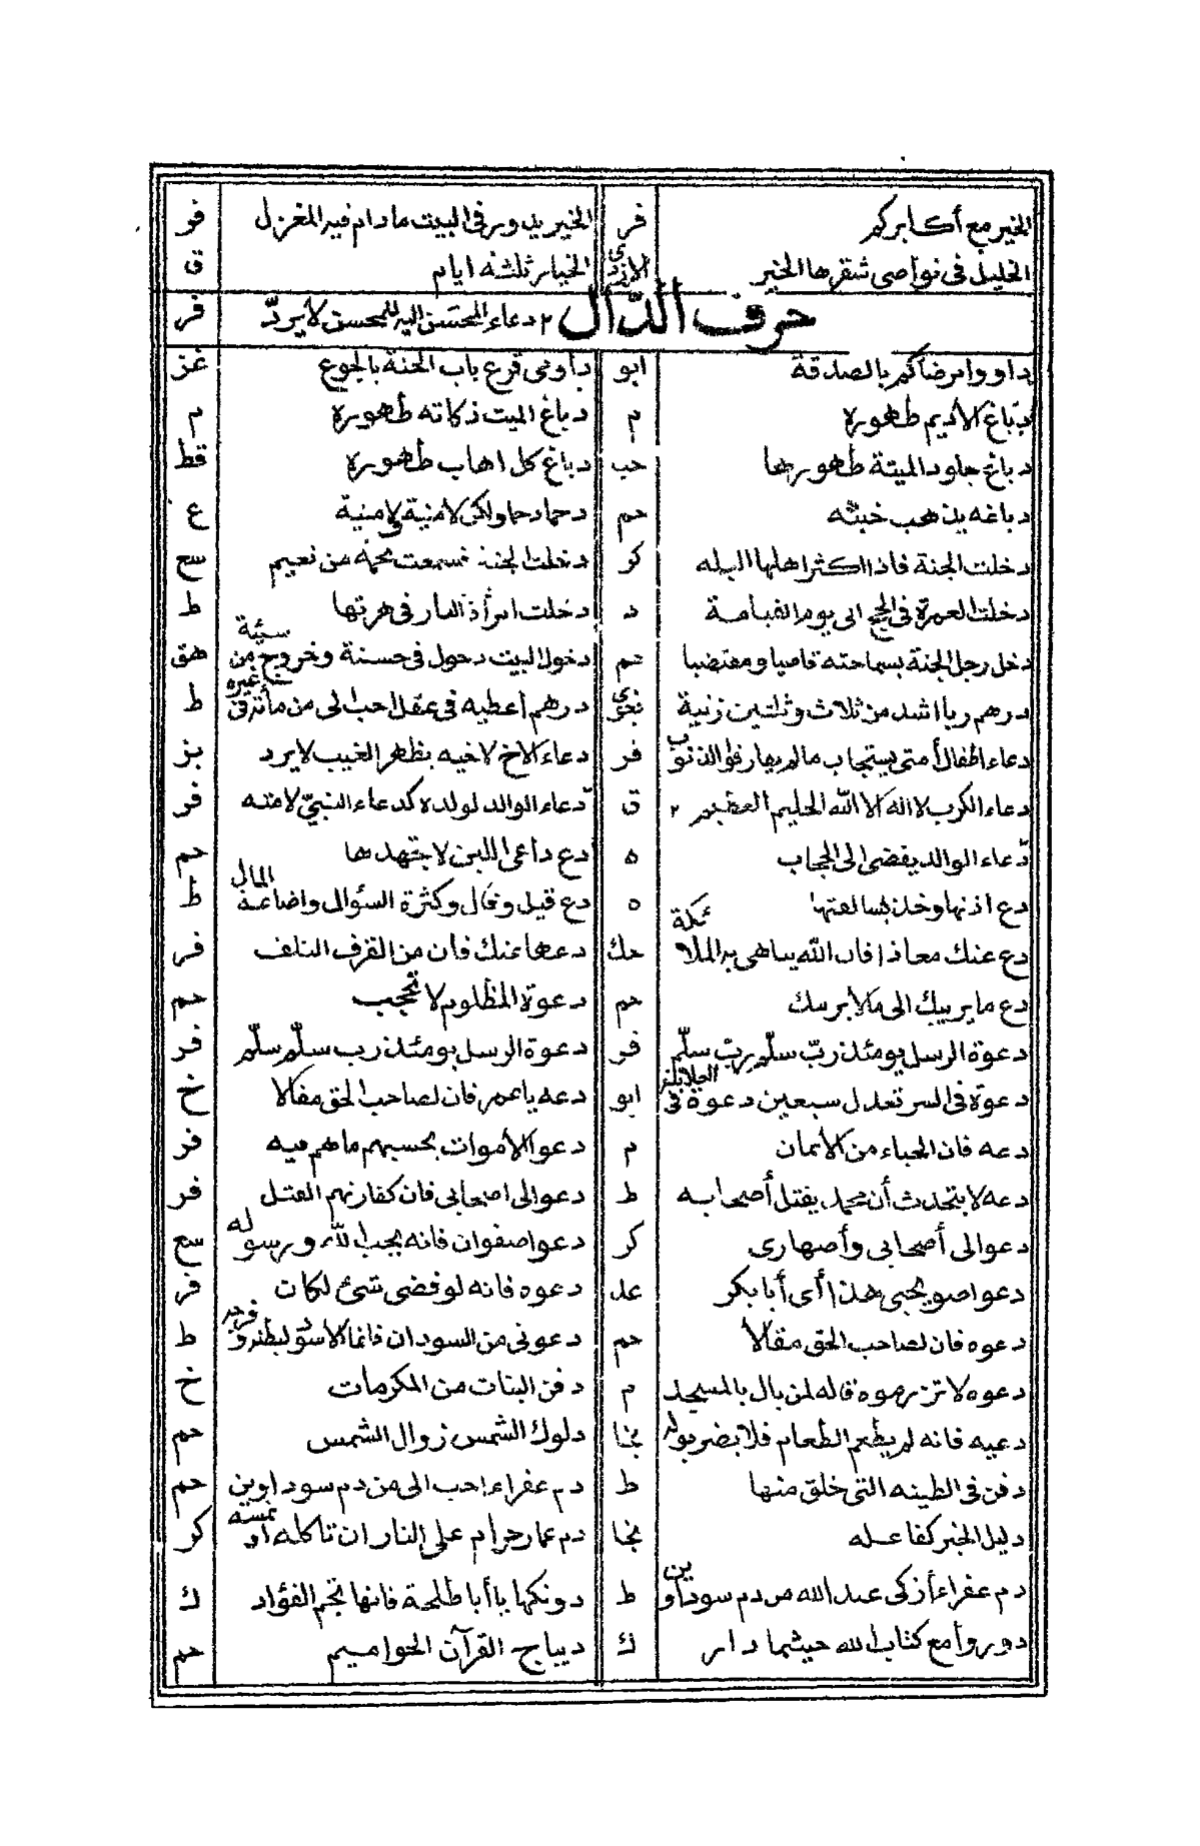 الخير مع أكابركم فر الخير يدور في البيت ما دام فيه المغزل فو
الخيل في نواصي شقرها الخير الازدي الخيار ثلثة ايام ق
حرف الدّال ٢ دعاء المحسَن اليه للمحسن لا يردّ فر
داووا مرضاكم بالصدقة ابو داومى قرع باب الجنة بالجوع غز
دباغ الأديم طهوره م دباغ الميت ذكاته طهوره م
دباغ جلود الميتة طهورها حب دباغ كل اهاب طهوره قط
دباغه يذهب خبثه حم ع
دخلت الجنة فاذا اكثر اهلها البله كر دخلت الجنة فسمعت نحمة من نعيم سع
دخلت العمرة في الحج الى يوم القيامة د دخلت امرأة النار في هرتها ط
دخل رجل الجنة بسماحته قاضيا ومقتضيا حم دخول البيت دخول في حسنة وخروج من سيئة هق
درهم ربا اشد من ثلاث وثلثين زنية بغوي درهم أعطيه في عقل احب الى من مأئة في غيره ط
دعاء اطفال أمتي يستجاب ما لم يقارفوا الذنوب فر دعاء الاخ لاخيه بظهر الغيب لا يرد بز
دعاء الكرب لا اله الا الله الحليم العظيم ٢ ق دعاء الوالد لولده كدعاء النبيّ لامته فر
دعاء الوالد يفضى الى الحجاب ه دع داعى اللبن لا تجهدها حم
دع اذنها وخذ بسالفتها ه دع قيل وقال وكثرة السؤال واضاعة المال ط
دع عنك معاذا فان الله يباهى به الملائكة حك دعها عنك فان من القرف التلف فر
دع ما يريبك الى ما لا يريبك حم دعوة المظلوم لا تحجب حم
دعوة الرسل يومئذ ربّ سلّم ربّ سلّم فر دعوة الرسل يومئذ رب سلّم سلّم فر
دعوة في السر تعدل سبعين دعوة في العلانية ابو دعه يا عمر فان لصاحب الحق مقالا خ
دعه فان الحياء من الأيمان م دعوا الأموات بحسبهم ما هم فيه فر
دعه لا يتحدث أن محمد يقتل أصحابه ط دعوا لى اصحابى فان كفارتهم القتل فر
دعوا لى أصحابى وأصهارى كر دعوا صفوان فانه يحب الله ورسوله سع
دعوا صويحبى هذا أى أبا بكر عد دعوه فانه لو قضى شئ لكان فر
دعوه فان لصاحب الحق مقالا حم دعونى من السودان فانما الاسود لبطنه وفرجه ط
دعوه لا تزرموه قاله لمن بال بالمسجد م دفن البنات من المكرمات خ
دعيه فانه لم يطعم الطعام فلا يضر بوله نجا دلوك الشمس زوال الشمس حم
دفن في الطينه التى خلق منها ط دم عفراء احب الى من دم سوداوين حم
دليل الخير كفاعله نجا دم عمار حرام على النار ان تاكله او تمسه كر
دم عفراء أزكى عند الله من دم سوداوين ط دونكها يا أبا طلحة فانها تجم الفؤاد ك
دوروا مع كتاب الله حيثما دار ك ديباج القرآن الحواميم حم